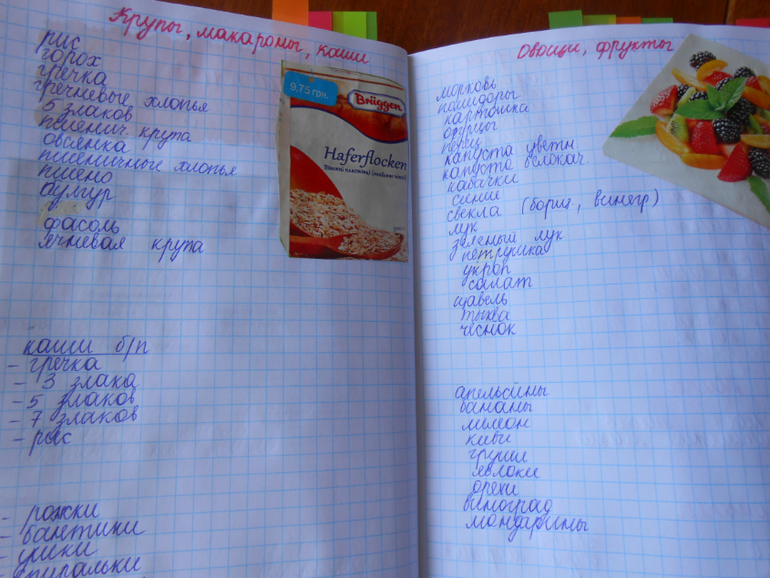 Крупы, макароны, каши
рис
горох
гречка
гречневые хлопья
5 злаков
пшенич. крупа
овсянка
пшеничные хлопья
пшено
булгур
фасоль
ячневая крупа
9,75 грн.
Brüggen
Haferflocken
каши б/п
- гречка
- 3 злака
- 5 злаков
- 7 злаков
- рис
- рожки
- бантики
- ушки
- спиральки
Овощи, фрукты
морковь
помидоры
картошка
огурцы
перец
капуста цветн.
капуста белокач.
кабачки
синие
свекла (борщ, винегр)
лук
зеленый лук
петрушка
укроп
салат
щавель
тыква
чеснок
апельсины
бананы
лимон
киви
груши
яблоки
орехи
виноград
мандарины